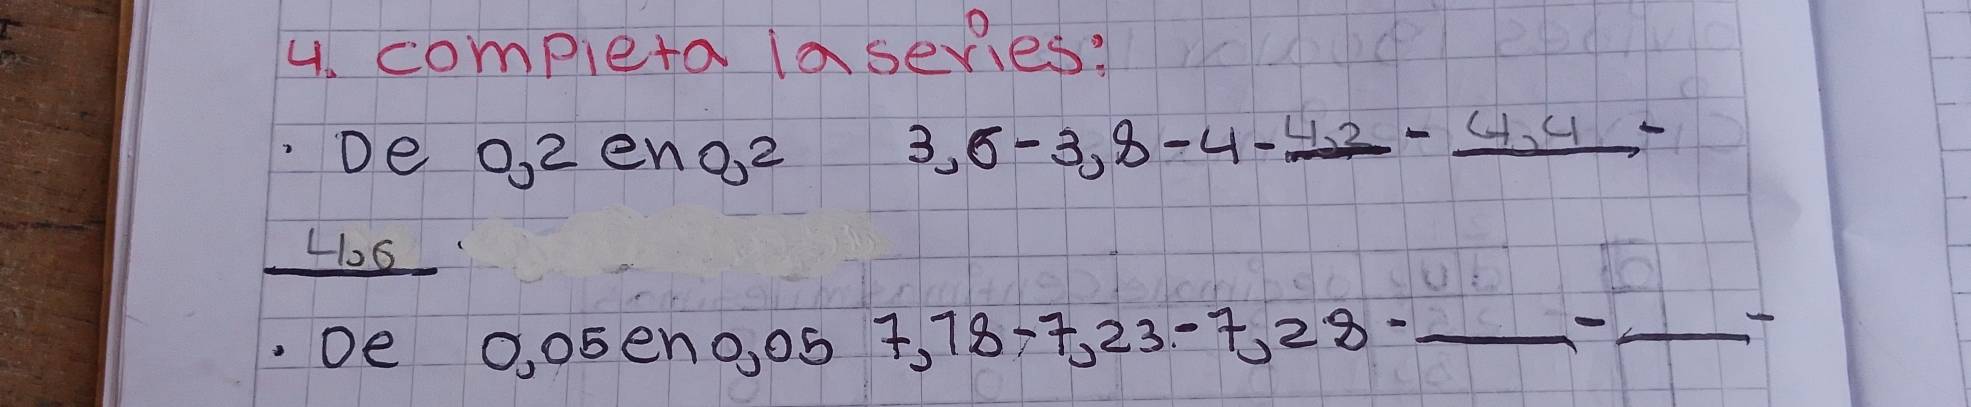 4. completa la series:
. De 0,2 en 0,2 3,6-3,8-4-4,2 - 4,4 -
4,6.
. De 0,05 en 0,05 7,18-7,23-7,28-____-____-